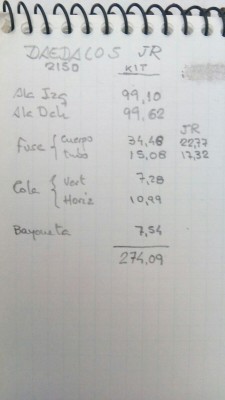 DAEDALOS JR
2150 KIT
Ala Izq 99,10
Ala Dch 99,62
JR
Fuse { Cuerpo 34,48 22,77
tubo 15,08 17,32
Cola { Vert 7,28
Horiz 10,99
Bayoneta 7,54
274,09